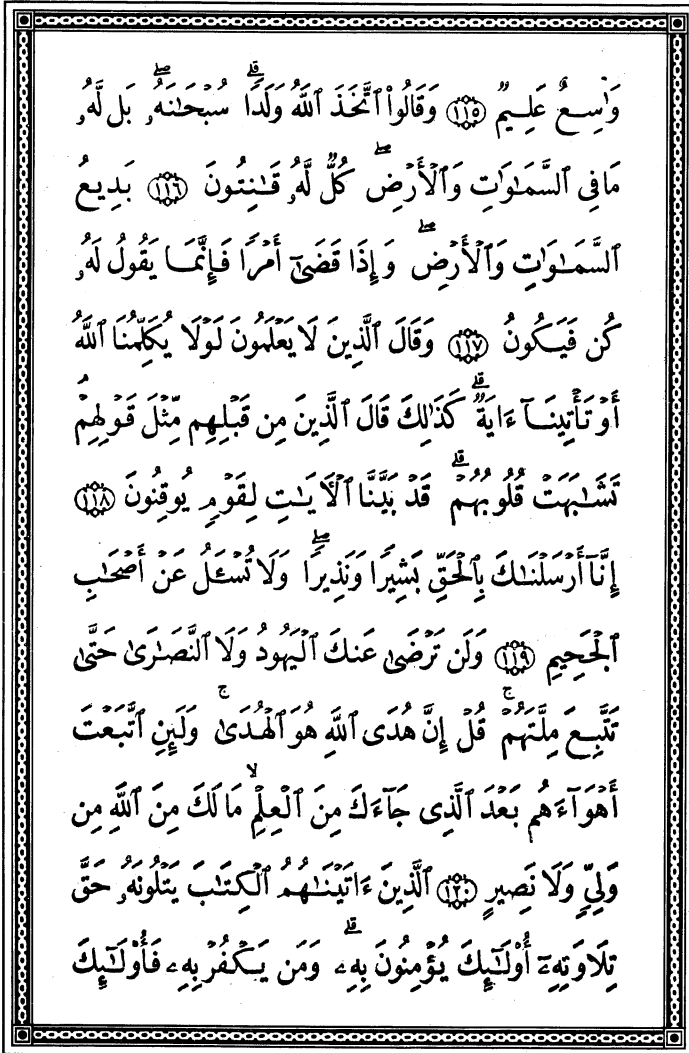 وَٰسِعٌ عَلِيمٌ ۝١١٥ وَقَالُوا۟ ٱتَّخَذَ ٱللَّهُ وَلَدًا ۗ سُبْحَـٰنَهُۥ ۖ بَل لَّهُۥ
مَا فِى ٱلسَّمَـٰوَٰتِ وَٱلْأَرْضِ ۖ كُلٌّ لَّهُۥ قَـٰنِتُونَ ۝١١٦ بَدِيعُ
ٱلسَّمَـٰوَٰتِ وَٱلْأَرْضِ ۖ وَإِذَا قَضَىٰٓ أَمْرًا فَإِنَّمَا يَقُولُ لَهُۥ
كُن فَيَكُونُ ۝١١٧ وَقَالَ ٱلَّذِينَ لَا يَعْلَمُونَ لَوْلَا يُكَلِّمُنَا ٱللَّهُ
أَوْ تَأْتِينَآ ءَايَةٌ ۗ كَذَٰلِكَ قَالَ ٱلَّذِينَ مِن قَبْلِهِم مِّثْلَ قَوْلِهِمْ ۘ
تَشَـٰبَهَتْ قُلُوبُهُمْ ۗ قَدْ بَيَّنَّا ٱلْـَٔايَـٰتِ لِقَوْمٍ يُوقِنُونَ ۝١١٨
إِنَّآ أَرْسَلْنَـٰكَ بِٱلْحَقِّ بَشِيرًا وَنَذِيرًا ۖ وَلَا تُسْـَٔلُ عَنْ أَصْحَـٰبِ
ٱلْجَحِيمِ ۝١١٩ وَلَن تَرْضَىٰ عَنكَ ٱلْيَهُودُ وَلَا ٱلنَّصَـٰرَىٰ حَتَّىٰ
تَتَّبِعَ مِلَّتَهُمْ ۚ قُلْ إِنَّ هُدَى ٱللَّهِ هُوَ ٱلْهُدَىٰ ۚ وَلَئِنِ ٱتَّبَعْتَ
أَهْوَآءَهُم بَعْدَ ٱلَّذِى جَآءَكَ مِنَ ٱلْعِلْمِ ۙ مَا لَكَ مِنَ ٱللَّهِ مِن
وَلِىٍّ وَلَا نَصِيرٍ ۝١٢٠ ٱلَّذِينَ ءَاتَيْنَـٰهُمُ ٱلْكِتَـٰبَ يَتْلُونَهُۥ حَقَّ
تِلَاوَتِهِۦٓ أُو۟لَـٰٓئِكَ يُؤْمِنُونَ بِهِۦ ۗ وَمَن يَكْفُرْ بِهِۦ فَأُو۟لَـٰٓئِكَ